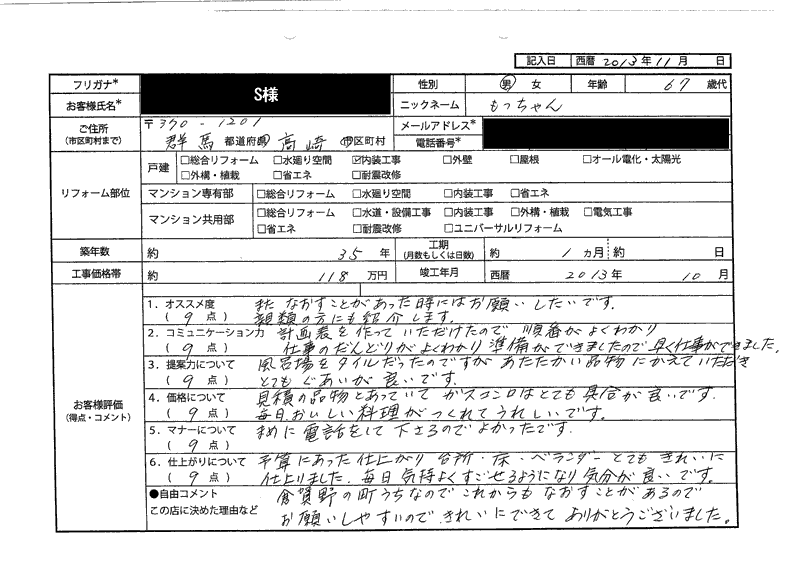 記入日 西暦 2013年11月 日
フリガナ* S様 性別 男 女 年齢 67 歳代
お客様氏名* ニックネーム もっちゃん
ご住所 (市区町村まで) 〒370-1201 メールアドレス*
群馬 都道府県 高崎 市区町村 電話番号*
リフォーム部位 戸建 □総合リフォーム □水廻り空間 ☑内装工事 □外壁 □屋根 □オール電化・太陽光
□外構・植栽 □省エネ □耐震改修
マンション専有部 □総合リフォーム □水廻り空間 □内装工事 □省エネ
マンション共用部 □総合リフォーム □水道・設備工事 □内装工事 □外構・植栽 □電気工事
□省エネ □耐震改修 □ユニバーサルリフォーム
築年数 約 35 年 工期 (月数もしくは日数) 約 1 カ月 約 日
工事価格帯 約 118 万円 竣工年月 西暦 2013年 10月
お客様評価 (得点・コメント)
1. オススメ度 また なおすことがあった時にはお願いしたいです.
( 9 点 ) 親類の方にも紹介します.
2. コミュニケーション力 計画表を作っていただけたので 順番がよくわかり
( 9 点 ) 仕事のだんどりがよくわかり 準備ができましたので早く仕事ができました.
3. 提案力について 風呂場をタイルだったのですが あたたかい品物にかえていただき
( 9 点 ) とてもぐあいが良いです.
4. 価格について 見積の品物とあっていて ガスコンロはとても具合が良いです.
( 9 点 ) 毎日おいしい料理がつくれてうれしいです.
5. マナーについて まめに電話をして下さるのでよかったです.
( 9 点 )
6. 仕上がりについて 予算にあった仕上がり 台所・床・ベランダーとてもきれいに
( 9 点 ) 仕上りました. 毎日気持よくすごせるようになり気分が良いです.
●自由コメント 倉賀野の町うちなのでこれからもなおすことがあるので
この店に決めた理由など お願いしやすいので きれいにできて ありがとうございました.